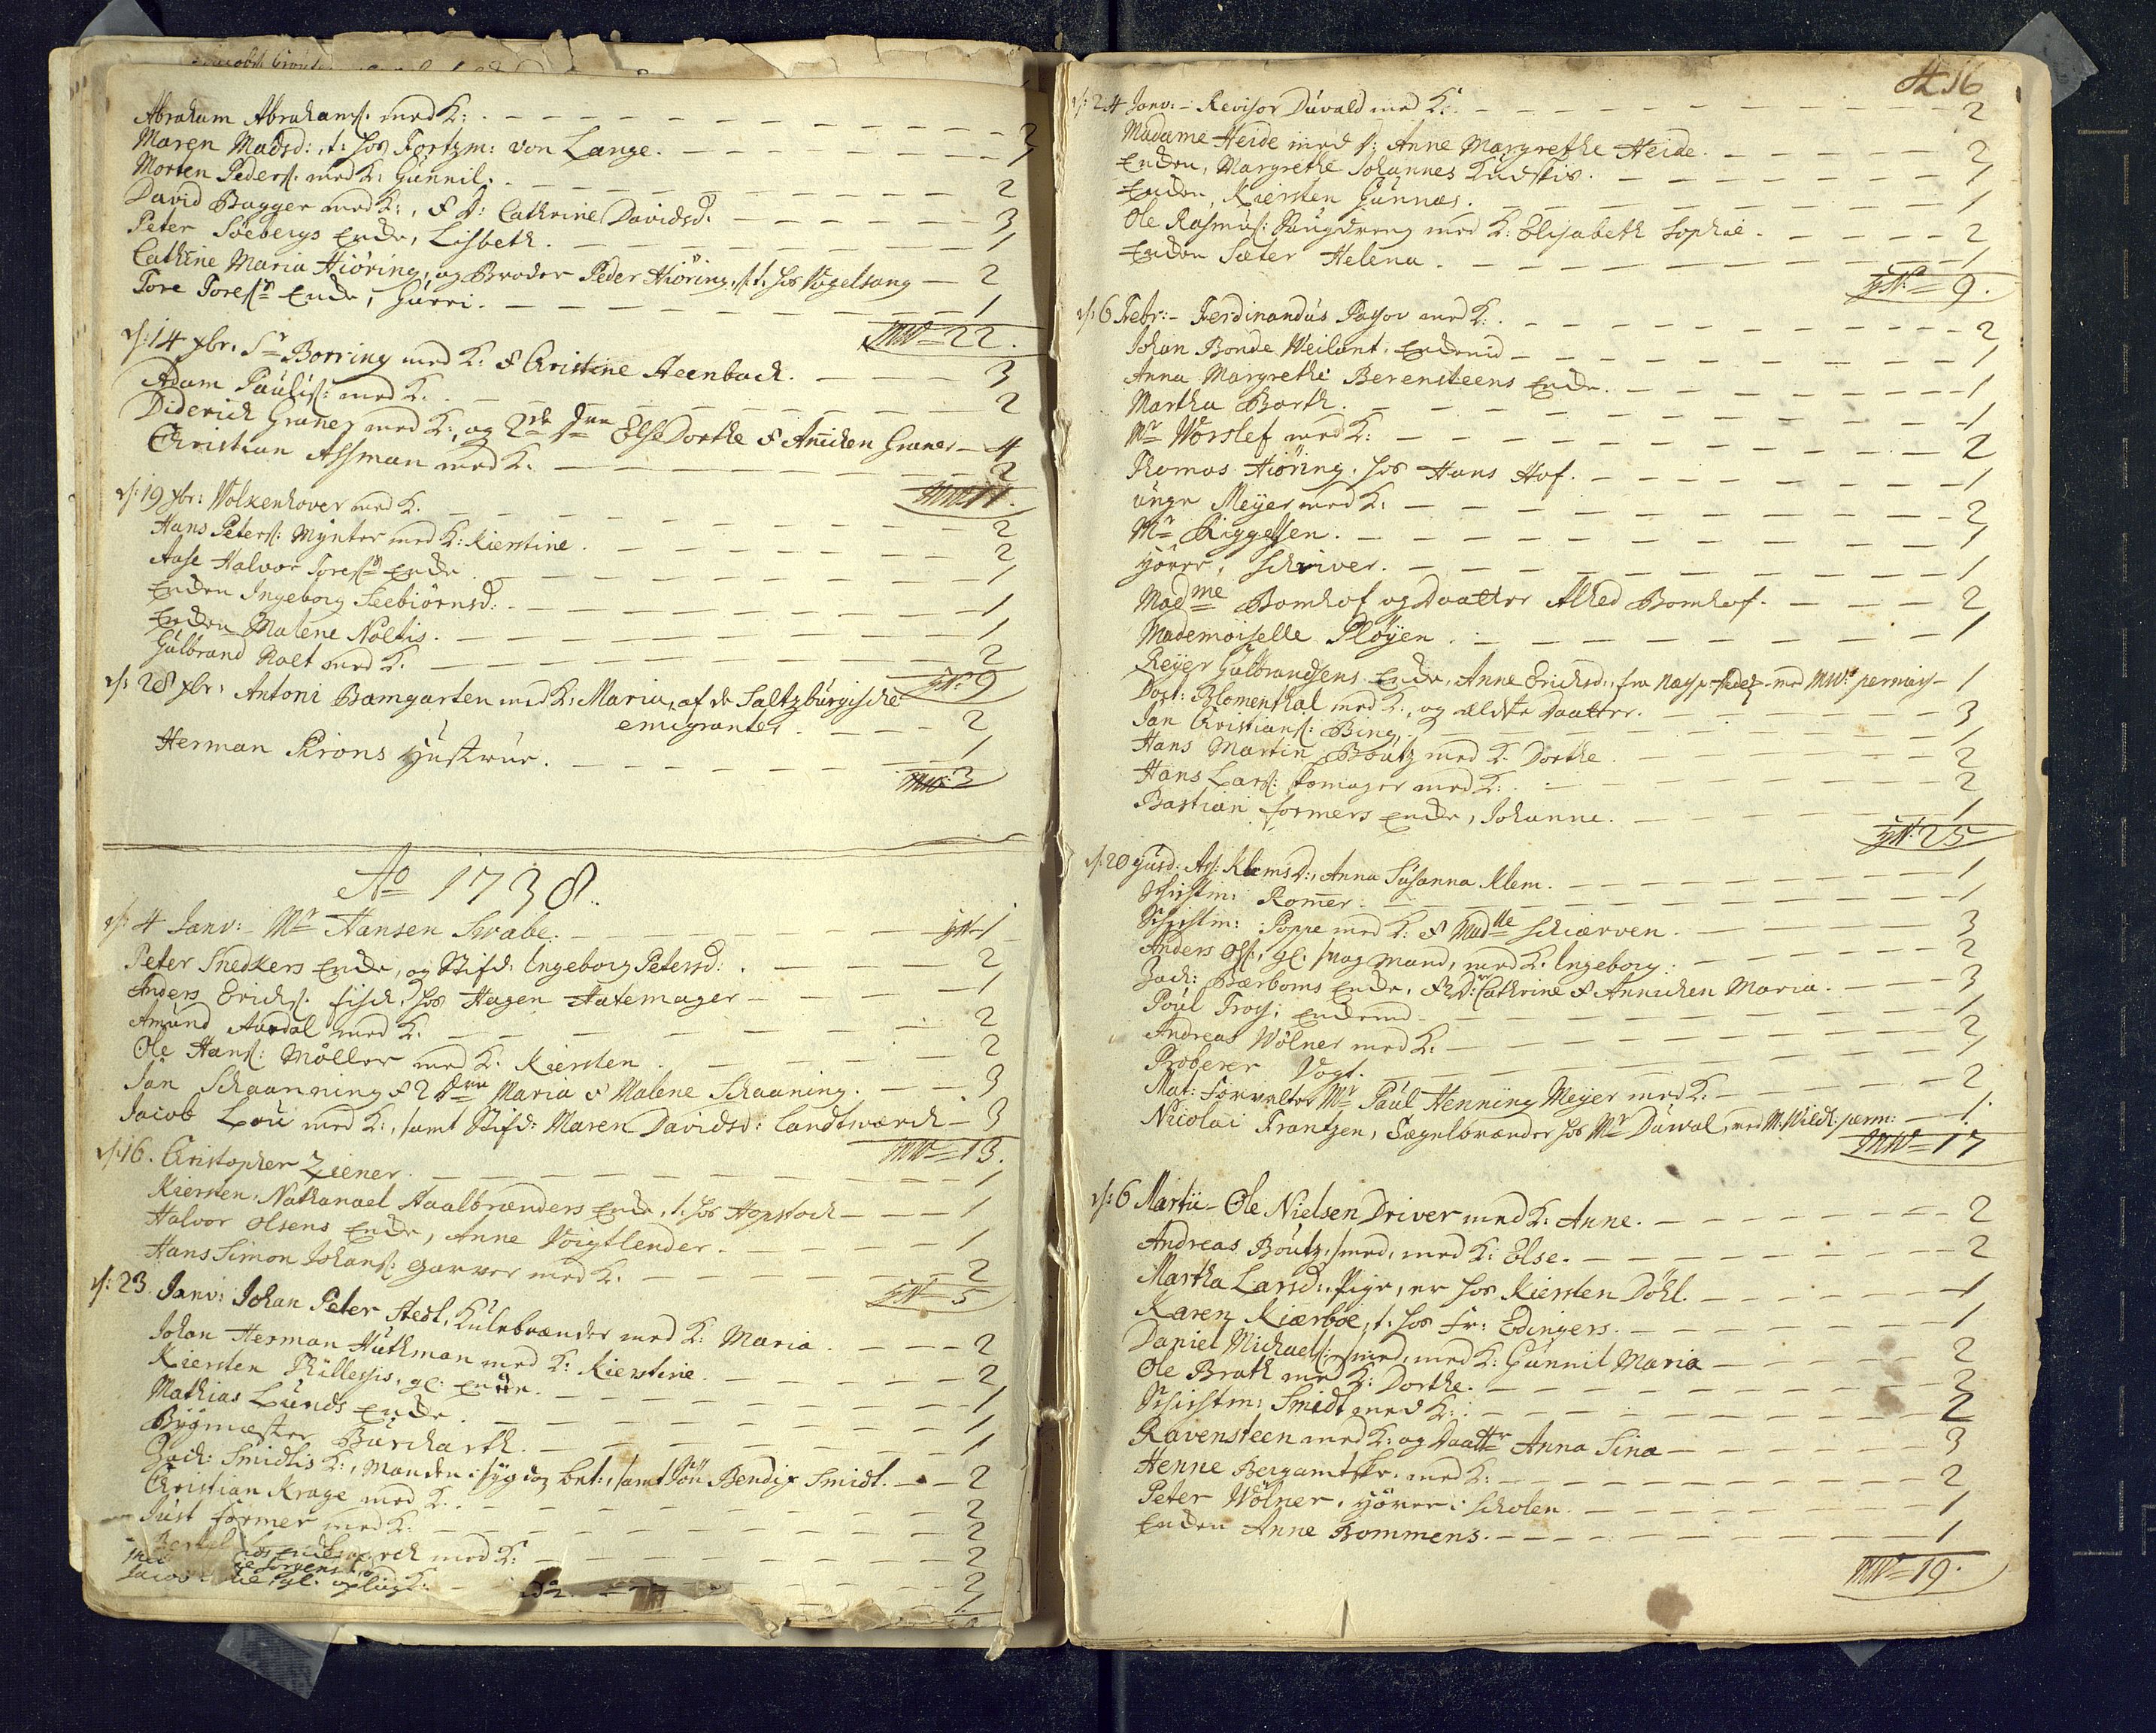 Abraham Abrahams. med K: 2
Maren Madsd: t: hos Fortgm: von Lange. 1
Morten Peders. med K: Gunnil. 2
David Bagger med K:, & D: Cathrine Davidsd. 3
Peter Söebergs Enche, Lisbeth. 1
Cathrine Maria Hiöring, og Broder Peder Hiöring, t. hos Vogelsang 2
Tore Tores: Enche, Gurri. 1
MW 22.
d: 14 xbr. Sr Borring med K: & Christine Steenback. 3
Adam Paulis: med K. 2
Diderich Graner med K:, og 2de Døttre Else Dorthe & Anichen Graner 4
Christian Assman med K. 2
MW 11.
d: 19 xbr: Wolkenhover med K. 2
Hans Peters: Mynter med K: Kierstine. 2
Aase Halvor Tores: Enche 1
Enchen Ingeborg Seebiörnsd: 1
Enchen Malene Noltis. 1
Gulbrand Holt med K. 2
9
d: 28 xbr: Antoni Bamgarten med K: Maria, af de Saltzburgische
emigranter. 2
Herman Skrons Hustrue. 1
MW: 3
Ao 1738.
d: 4 Janv: Mr Hansen Svabe. 1
Peter Snedkers Enche, og Stifd: Ingeborg Petersd: 2
Anders Erichs. fisch. hos Hagen Hatemager 1
Amund Aardal med K. 2
Ole Hans: Möller med K. Kiersten 2
Jan Schaanning & 2 Døttre Maria & Malene Schaaning. 3
Jacob Lou med K:, samt Stifd: Maren Davidsd: Landtværch 3
MW 13.
d: 16. Christopher Ziener. 1
Kiersten Nathanael Staalbrænders Enche, t. hos Hopstock 1
Halvor Olsens Enche, Anne Voigtlender. 1
Hans Simon Johans: Garver med K. 2
5
d: 23. Janv: Johan Peter Stedt, Kulebrænder med K: Maria. 2
Johan Herman Huthman med K: Kierstine. 2
Kiersten Thillessis, gl: Enche. 1
Mathias Lunds Enche. 1
Bygmester Burcharth. 1
Zach: Smidtis K:, Manden i syg dog bet:, samt Søn Bendix Smidt. 2
Christian Krage med K. 2
Just former med K. 2
med K: 2
2
1
416
d: 24 Janv: Revisor Duvald med K: 2
Madame Heide med D: Anne Margrethe Heide. 2
Enchen, Margrethe Johannes Kudskis. 1
Enchen, Kiersten Gunnas. 1
Ole Rasmus: Pungdreng med K: Elisabeth Sophie. 2
Enchen Sæter Helena. 1
9.
d: 6 Febr: Ferdinandus Paysov med K: 2
Johan Bonde Weilant, Enchemand 1
Anna Margrethe Berensteens Enche. 1
Martha Barth. 1
Mr Worslef med K: 2
Thomas Hiöring, hos Hans Hof. 1
unge Meyer med K: 2
Mr Biggelsen. 1
Höyer, Schriver. 1
Madme Bomhof og Daatter Alhed Bomhof. 2
Mademoiselle Pløyen. 1
Reyer Gulbrandsens Enche, Anne Erichsd:, fra med MWs permis. 1
Doct: Blomenthal med K., og eldste Daatter. 3
Jan Christians: Bing. 1
Hans Martin Boutz med K. Dorthe 2
Hans Lars: Komager med K: 2
Bastian formers Enche, Johanne. 1
25
d: 20 Klems D:, Anna Susanna Klem. 1
Schichtm: Romer. 1
Schichtm: Poppe med K: & Madlle Schierven. 3
Anders Ols:, gl. svag Mand, med K. Ingeborg. 2
Zach: Bærboms Enche, & 2 D: Cathrine & Annichen Maria. 3
Poul Troy, Enchemand 1
Andreas Wölner med K: 2
Proberer Vogt. 1
Mat: Forvalter Mr Paul Henning Meyer med K. 2
Nicolai Frantzen, Tægelbrænder hos Mr Duwal, med M. Wildt: perm: 1.
MW 17
d: 6 Martii Ole Nielsen Driver med K. Anne. 2
Andreas Boutz, smed, med K: Else. 2
Martha Larsd:, Pige, er hos Kiersten Döhl. 1
Karen Kiærböe, t. hos Fr: Edingers. 1
Daniel Michaels: smed, med K: Gunnil Maria 2
Ole Brath med K: Dorthe. 2
Schichtm: Smidt med K: 2
Ravensteen med K: og Daatter Anna Sina 3
Henne Bergamtskr. med K: 2
Peter Wölner, Hörer i Scholen 1
Enchen Anne Bommens. 1
MW 19.